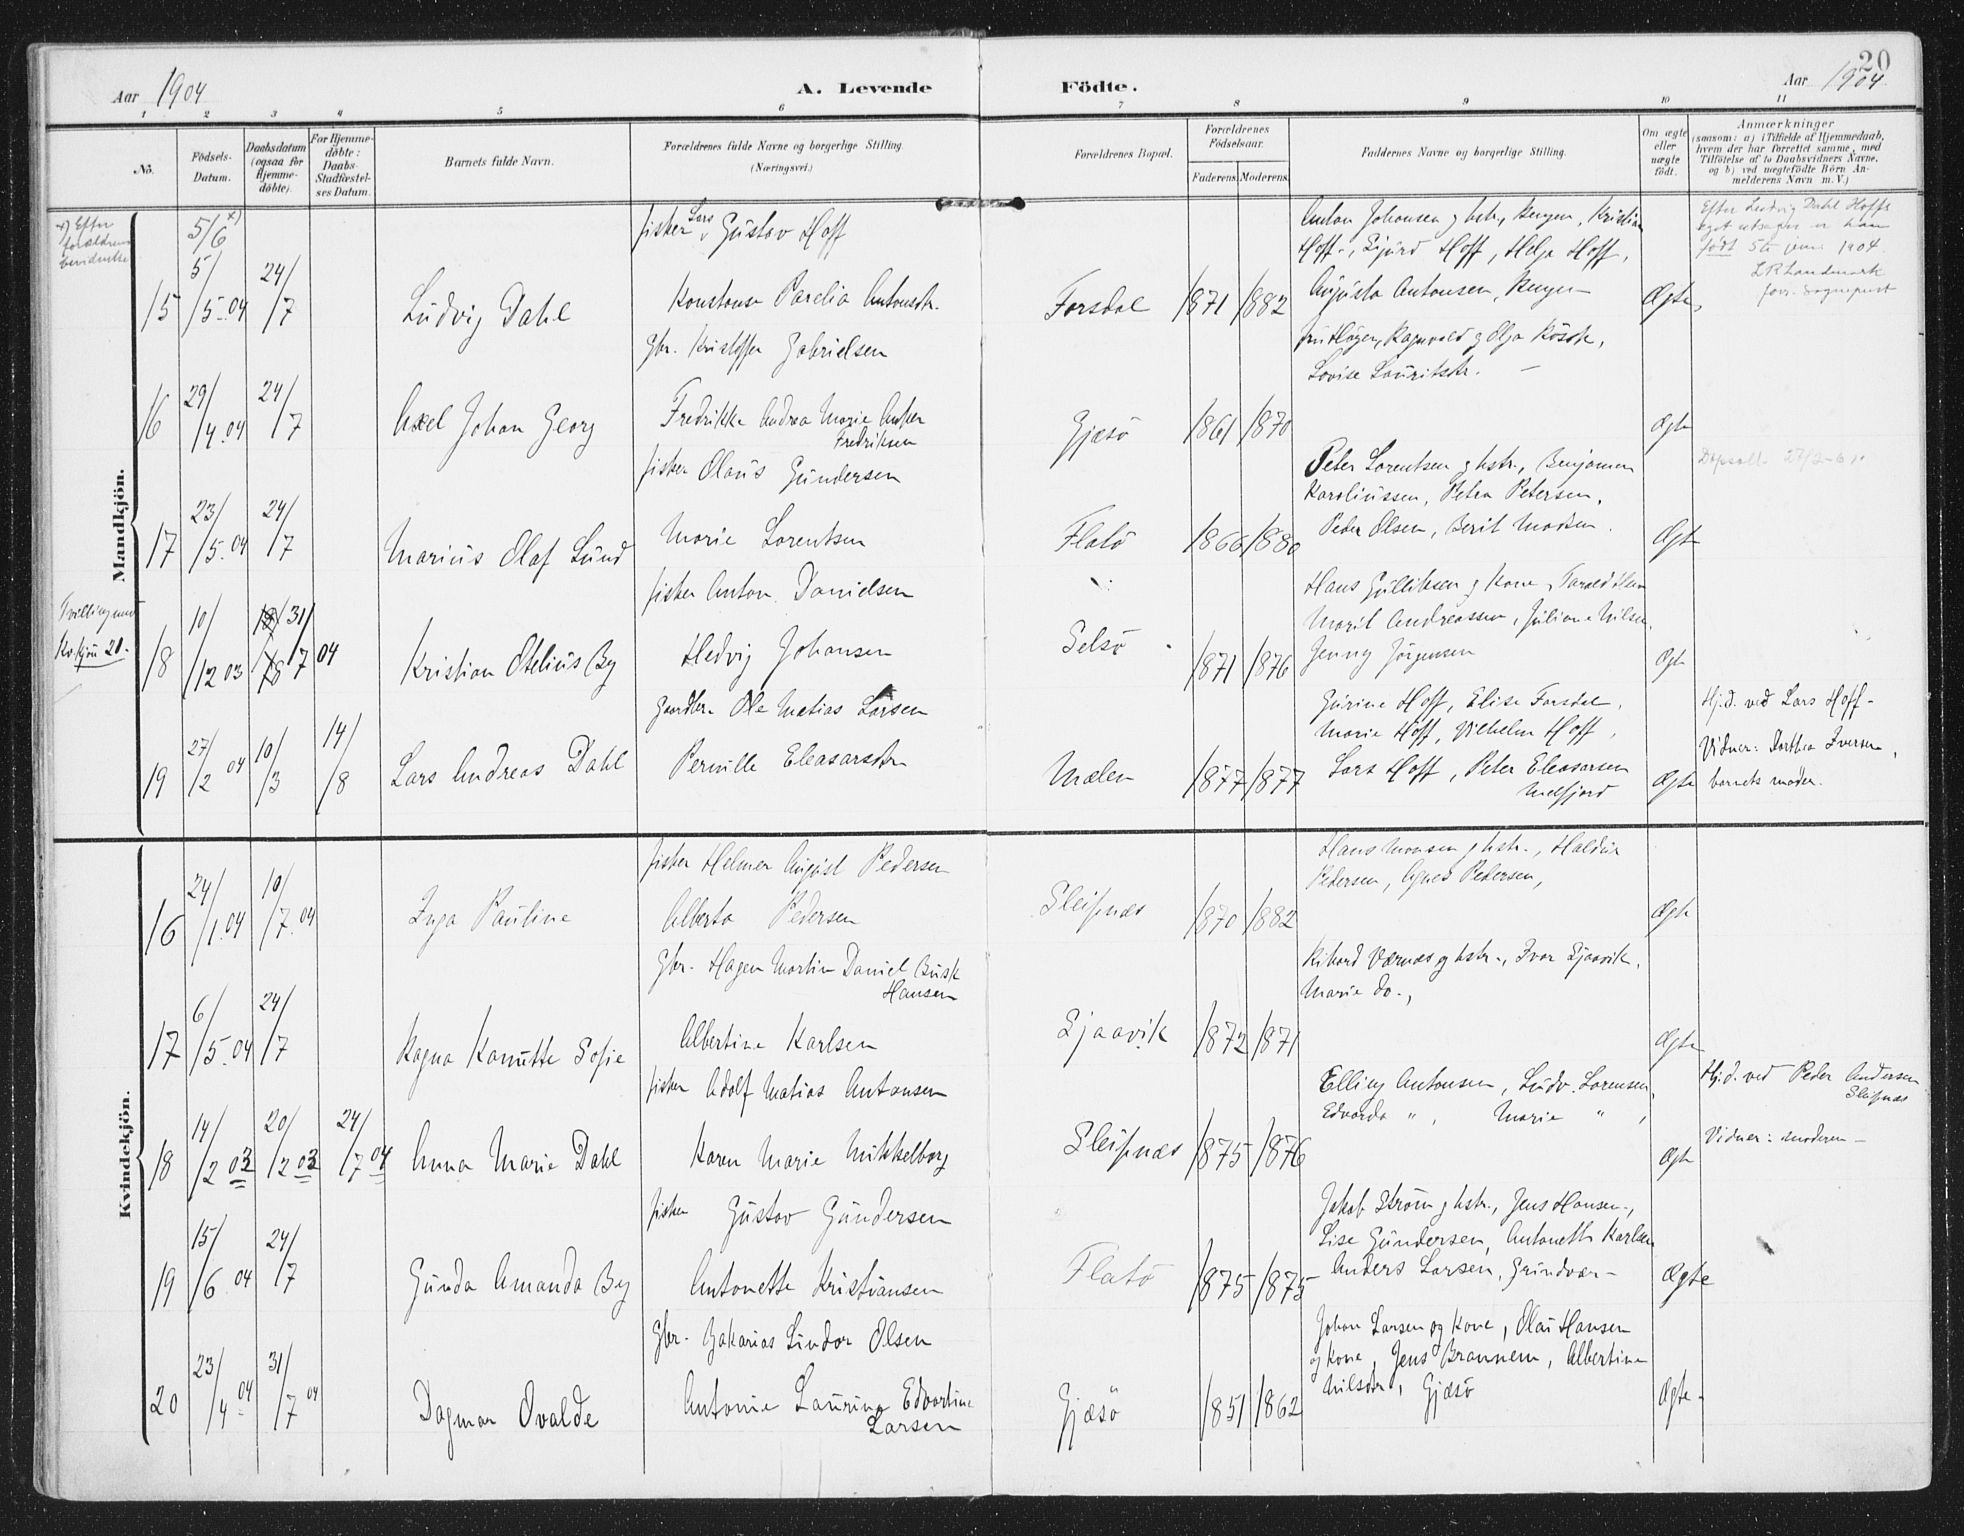 20
Aar 1904
A. Levende Födte.
Aar 1904.
1 2 3 4 5 6 7 8 9 10 11
No.
Födsels-Datum.
Daabsdatum (ogsaa for Hjemme-döbte).
For Hjemme-döbte: Daabs-Stadfæstel-ses Datum.
Barnets fulde Navn.
Forældrenes fulde Navne og borgerlige Stilling.
(Næringsvei.)
Forældrenes Bopæl.
Forældrenes Födselsaar.
Faderens. Moderens.
Faddernes Navne og borgerlige Stilling.
Om ægte eller uægte födt.
Anmærkninger
(saasom: a) i Tilfælde af Hjemmedaab,
hvem der har forrettet samme, med
Tilföielse af to Daabsvidners Navne,
og b) ved uægtefödte Börn An-
melderens Navn m. V.)
Mandkjön.
x) Efter
forældrenes
bevidnelse
5/6 x)
15 5/5.04 24/7 Ludvig Dahl
fisker Lars Gustav Hoff
Konstanse Parelia Antonsdtr.
Forsdal 1871 1882
Anton Johansen g hstr,
Hoff, Sigurd Hoff, Helga Hoff,
Augusta Antonsen,
Ægte,
Efter Ludvig Dahl Hoffs
eget utsagn er han
födt 5te juni 1904
16 29/4.04 24/7 Axel Johan Georg
Gbr. Kristoffer Gabrielsen
Fredrikke Andrea Marie
Fredriksen
Gjæsö 1861 1870
Ragnvald g Olga
Lovise Lauritsdtr.
Ægte
17 23/5.04 24/7 Marius Olaf Lund
fisker Olaus Gundersen
Marie Lorentsen
Flatö 1866 1880
Peter Lorentsen g hstr., Benjamin
Karoliussen, Petra Petersen,
Peder Olsen, Berit Madsen.
Ægte
Tvilling med
Kv.kjön 20.
18 10/12 03 31/7 04 Kristian Otelius By
fisker Anton Danielsen
Hedvig Johansen
Selsö 1871 1876
Hans Gulliksen g Kone,
Marit Andreassen, Juliane Nilsen
Jenny Jörgensen
Ægte
19 27/2 04 10/3 14/8 Lars Andreas Dahl
Ole Matias Larsen
Pernille Eleasarsdtr
Mælen 1877 1877
Gurine Hoff, Elise Forsdal,
Marie Hoff, Vilhelm Hoff,
Lars Hoff, Peter Eleasarsen
Melfjord
Ægte
Hj.d. ved Lars Hoff -
Vidner: Dorthea Iversen,
barnets moder.
Kvindekjön.
16 24/1.04 10/7.04 Inga Pauline
fisker Helmer August Pedersen
Alberta Pedersen
Sleipnæs 1870 1882
Hans Monsen g hstr.,
Pedersen, Agnes Pedersen,
Ægte
17 6/5.04 24/7 Ragna Kanutte Sofie
Gbr. Hagen Martin Daniel Busk
Hansen
Albertine Karlsen
Sjaavik 1872 1871
Rikard Værnæs og hstr., Ivar Sjaavik,
Marie do.,
Ægte
18 14/12 03 20/12 03 24/7 04 Anna Marie Dahl
fisker Adolf Matias Antonsen
Karen Marie Mikkelborg
Sleipnæs 1875 1876
Elling Antonsen, Ludv. Lorensen,
Edvarda „ , Marie „ ,
Ægte
Hj.d. ved Peder Andersen
Sleipnæs
Vidner: moderen -
19 15/6.04 24/7 Gunda Amanda By
fisker Gustav Gundersen
Antonette Kristiansen
Flatö 1875 1875
Jakob Ström g hstr., Jens Hansen,
Lise Gundersen, Antoneth Karlsen
Anders Larsen, Grindvær -
Ægte
20 23/4.04 31/7 04 Dagmar Ovalde
Gbr. Zakarias Lindor Olsen
Antonie Laurine Edvartine
Larsen
Gjæsö 1851 1862
Johan Larsen og Kone, Olai Hansen
og Kone, Jens Brannem, Albertine
Nilsdtr, Gjæsö
Ægte.